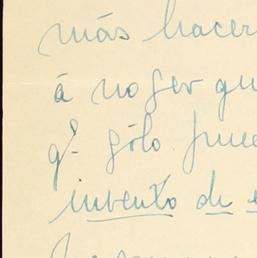 más hacer
á no ser qu
q.e sólo pue
invento de e